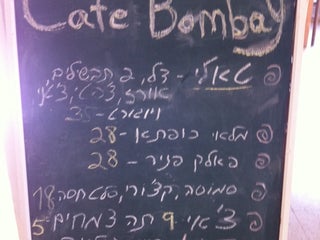 Cafe Bombay
טאלי - דל, 2 תבשילים,
אורז, צ'פטי, צ'אי
ויוגורט - 35
מלאי כופתא - 28
פאלק פניר - 28
סמוסה, קצ'ורי, סלט חסה 18
צ'אי 9 תה צמחים 5